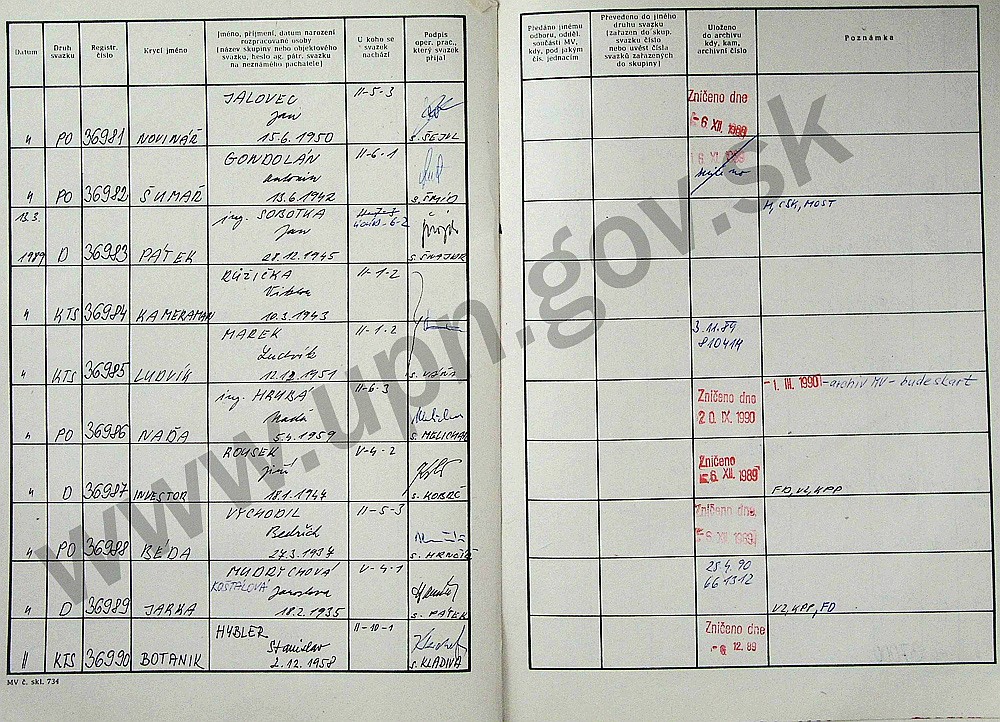 Datum
Druh svazku
Registr. číslo
Krycí jméno
Jméno, příjmení, datum narození
rozpracované osoby
(název skupiny nebo objektového
svazku, heslo ag. pátr. svazku
na neznámého pachatele)
U koho se
svazek
nachází
Podpis
oper. prac.,
který svazek
přijal
Předáno jinému
odboru, odděl.
součásti MV,
kdy, pod jakým
čís. jednacím
Převedeno do jiného
druhu svazku
(zařazen do skup.
svazku číslo
nebo uvést čísla
svazků zařazených
do skupiny)
Uloženo
do archivu
kdy, kam,
archivní číslo
Poznámka
JALOVEC II-5-3
Jan
" PO 36981 NOVINÁŘ 15.6.1950 s. ŠEJVL
Zničeno dne
-6. XII. 1989
GONDOLÁN II-6-1
Antonín
" PO 36982 ŠUMAŘ 13.6.1942 s. ŠMÍD
13.3. ing. SOBOTKA
Jan
1989 D 36983 PÁTEK 28.12.1945 s. ŠNAJDR
M, CSK, MOST
RŮŽIČKA II-1-2
Viktor
" KTS 36984 KAMERAMAN 10.3.1943
MAREK II-1-2
Ludvík
" KTS 36985 LUDVÍK 12.12.1951 s. VÁŇA
3.11.89
810414
ing. HRUBÁ II-6-3
Naďa
" PO 36986 NAĎA 5.4.1959 s. MELICHAR
Zničeno dne
20. IX. 1990
-1. III. 1990 - archiv MV - bude skart
ROUSEK V-4-2
Jiří
" D 36987 INVESTOR 18.1.1944 s. KOBRČ
Zničeno
-6. XII. 1989
FD, VZ, KPP
VÝCHODIL II-5-3
Bedřich
" PO 36988 BÉĎA 27.3.1937 s. HRNČÍŘ
Zničeno dne
-6. XII. 1989
MUDRYCHOVÁ V-4-1
KOŠŤÁLOVÁ Jaroslava
" D 36989 JARKA 18.2.1935 s. PÁTEK
25.4.90
661312
VZ, KPP, FD
HYBLER II-10-1
Stanislav
" KTS 36990 BOTANIK 2.12.1958 s. KLADIVA
Zničeno dne
-6. 12. 89
MV č. skl. 734
www.upn.gov.sk